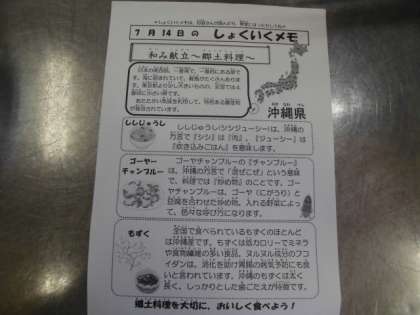 ７月１４日の しょくいくメモ
和み献立～郷土料理～
沖縄県
ししじゅうし
ししじゅうし(シシジューシー)は、沖縄の
方言で『シシ』は『肉』、『ジューシー』は
『炊き込みごはん』を意味します。
ゴーヤー
チャンプルー
ゴーヤーチャンプルーの『チャンプルー』
は、沖縄の方言で『混ぜこぜ』という意味
で、料理では『炒め物』のことです。ゴーヤ
ーチャンプルーは、ゴーヤー(にがうり)と
豆腐を合わせた炒め物。入れる野菜によっ
て、色々な呼び方になります。
もずく
全国で食べられているもずくのほとんど
は沖縄産です。もずくは低カロリーでミネラ
ルや食物繊維の多い食品。ヌルヌル成分のフコ
イダンは、消化を助け胃腸の病気予防にも良
いと言われています。沖縄のもずくは太く
長く、しっかりとした歯ごたえが特徴です。
郷土料理を大切に、おいしく食べよう！